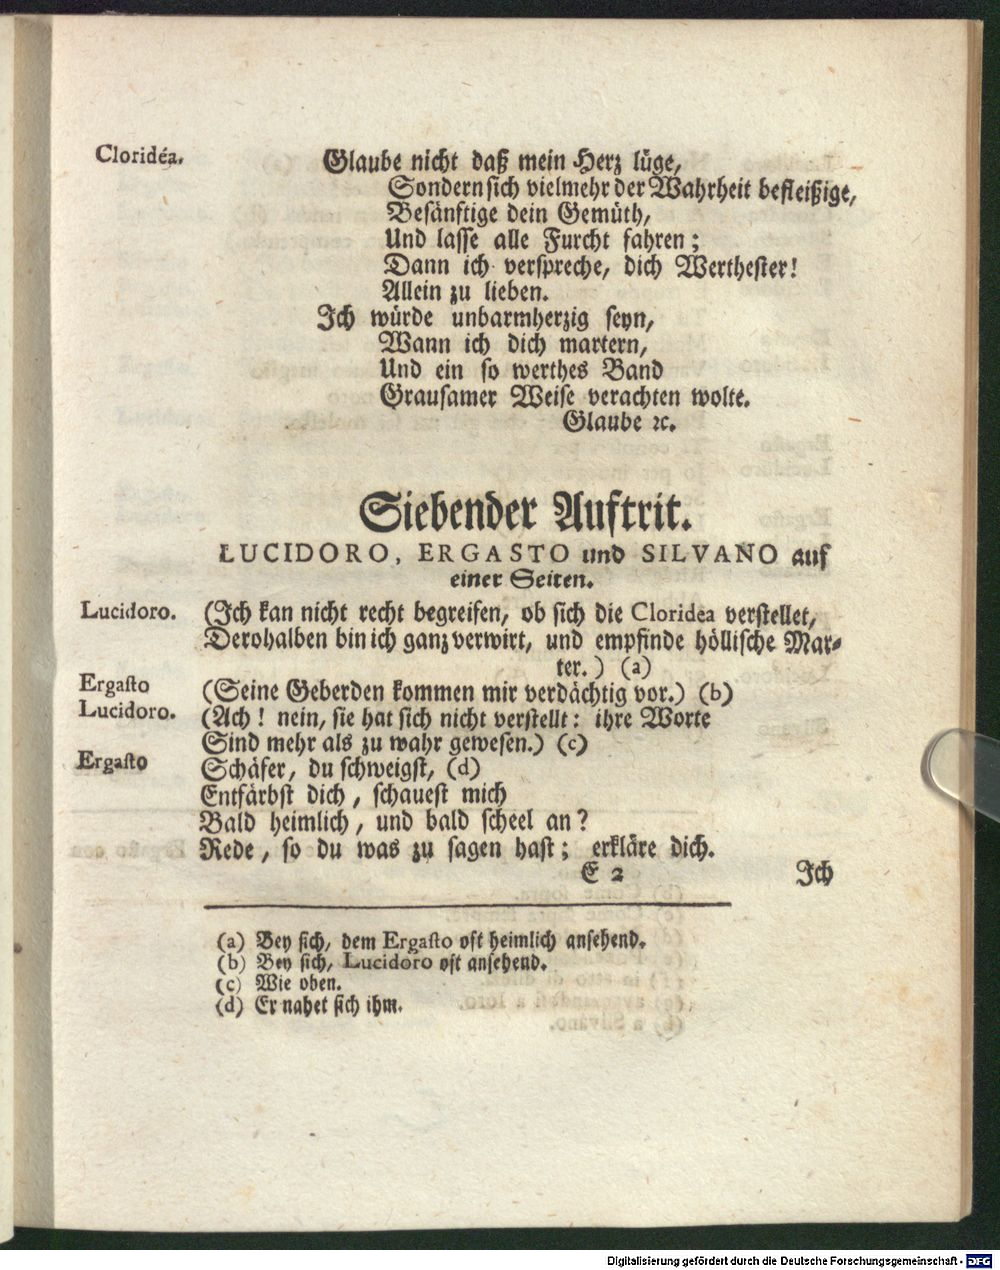 Cloridéa. Glaube nicht daß mein Herz lüge,
Sondern sich vielmehr der Wahrheit befleißige,
Besänftige dein Gemüth,
Und lasse alle Furcht fahren;
Dann ich verspreche, dich Werthester!
Allein zu lieben.
Ich würde unbarmherzig seyn,
Wann ich dich martern,
Und ein so werthes Band
Grausamer Weise verachten wolte.
Glaube ꝛc.
Siebender Auftrit.
LUCIDORO, ERGASTO und SILVANO auf
einer Seiten.
Lucidoro. (Ich kan nicht recht begreifen, ob sich die Cloridea verstellet,
Derohalben bin ich ganz verwirt, und empfinde höllische Mar-
ter.) (a)
Ergasto (Seine Geberden kommen mir verdächtig vor.) (b)
Lucidoro. (Ach! nein, sie hat sich nicht verstellt: ihre Worte
Sind mehr als zu wahr gewesen.) (c)
Ergasto Schäfer, du schweigst, (d)
Entfärbst dich, schauest mich
Bald heimlich, und bald scheel an?
Rede, so du was zu sagen hast; erkläre dich.
E 2 Ich
(a) Bey sich, dem Ergasto oft heimlich ansehend.
(b) Bey sich, Lucidoro oft ansehend.
(c) Wie oben.
(d) Er nahet sich ihm.
Digitalisierung gefördert durch die Deutsche Forschungsgemeinschaft - DFG